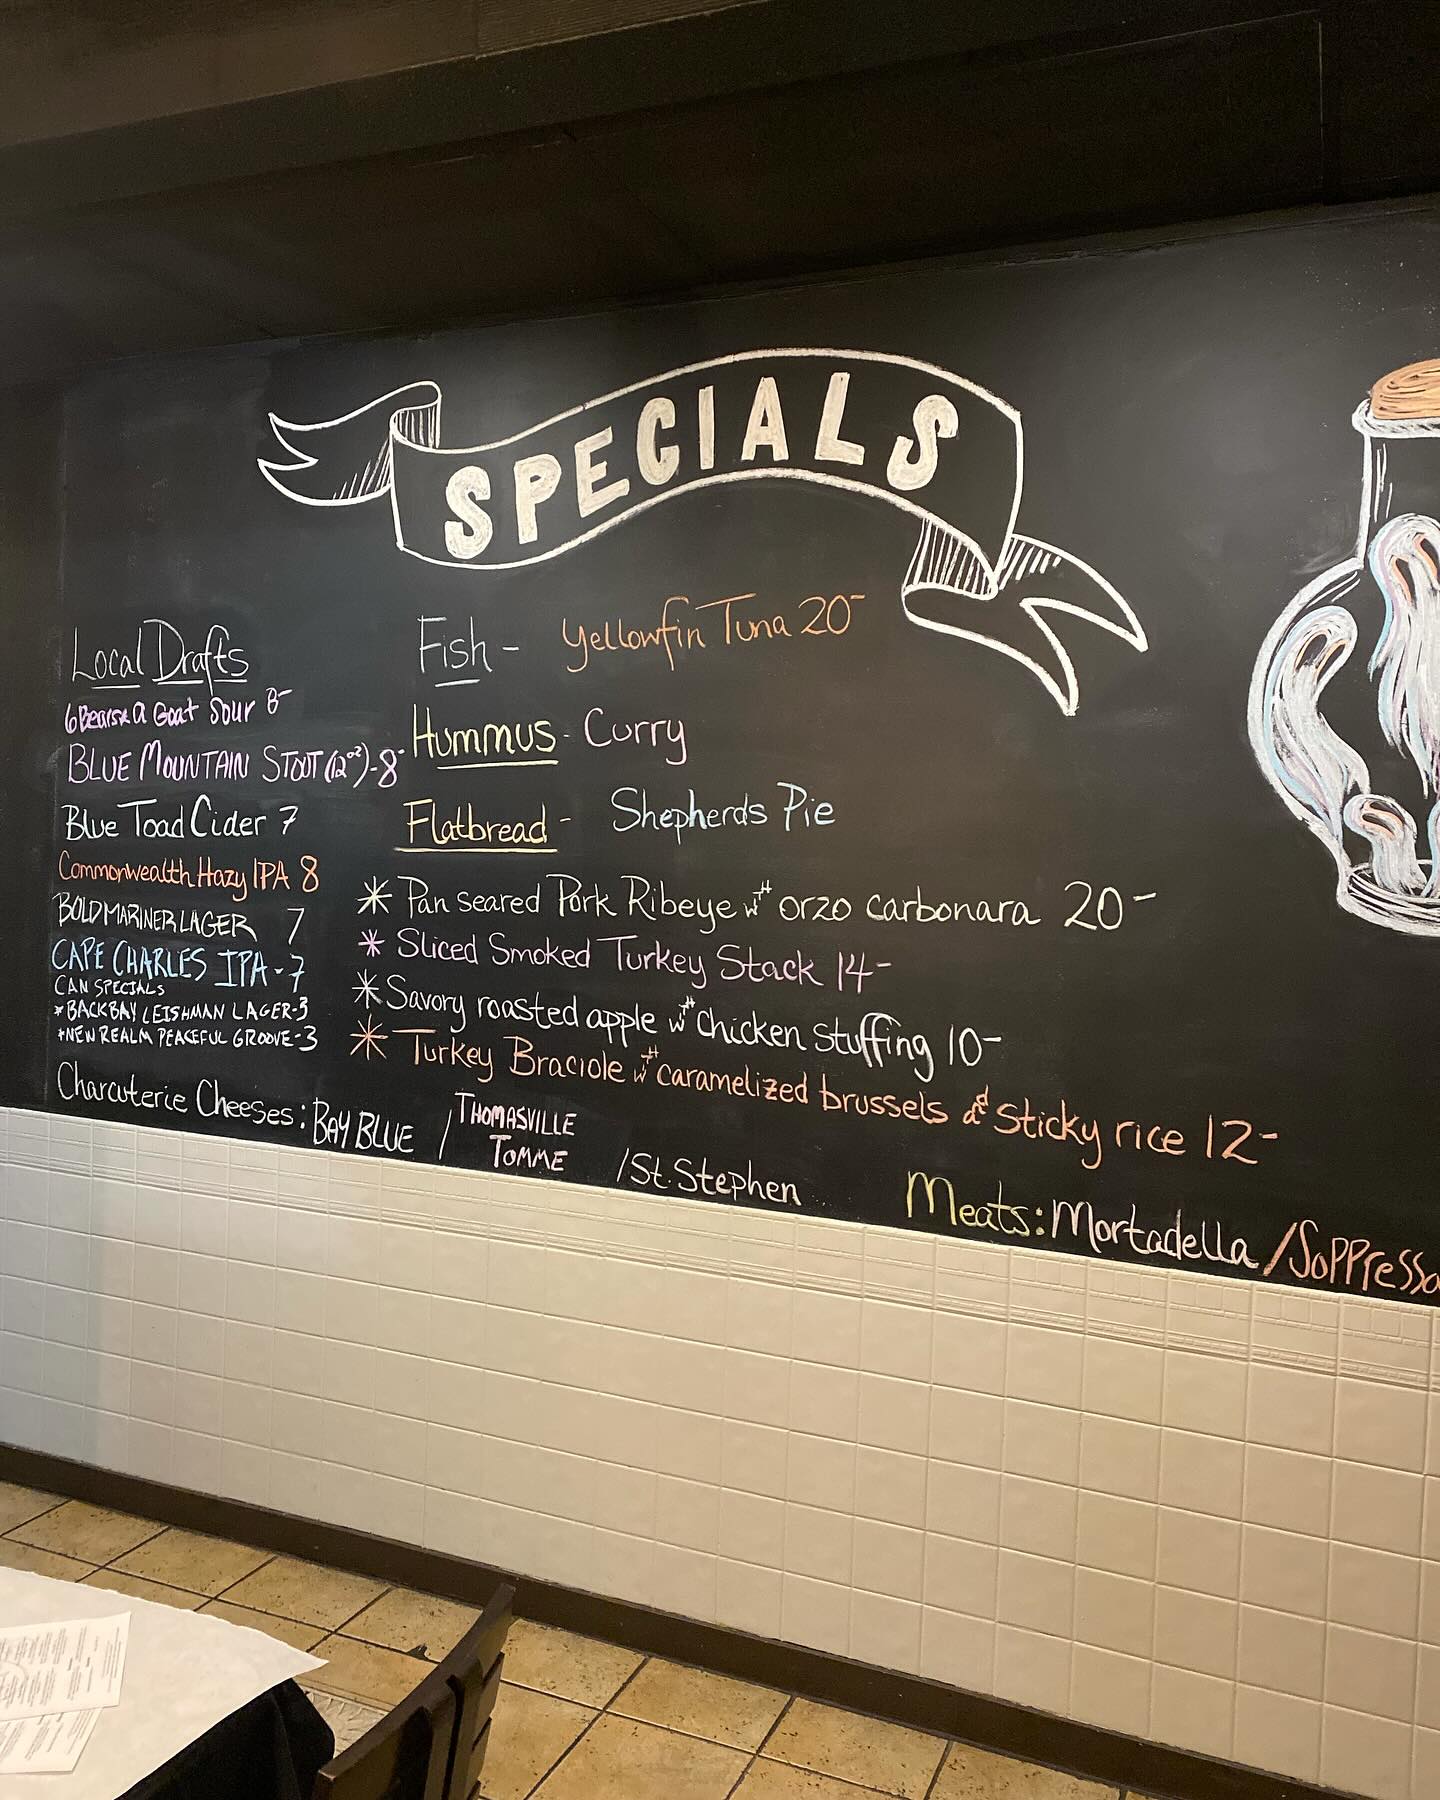 SPECIALS
Local Drafts
6 Bears & a Goat Sour 8-
BLUE MOUNTAIN STOUT (12oz)-8-
Blue Toad Cider 7
Commonwealth Hazy IPA 8
BOLD MARINER LAGER 7
CAPE CHARLES IPA-7
CAN SPECIALS
*BACKBAY LEISHMAN LAGER-3
*NEW REALM PEACEFUL GROOVE-3
Fish - Yellowfin Tuna 20-
Hummus - Curry
Flatbread - Shepherds Pie
* Pan seared Pork Ribeye w/ orzo carbonara 20-
* Sliced Smoked Turkey Stack 14-
* Savory roasted apple w/ chicken stuffing 10-
* Turkey Braciole w/ caramelized brussels and sticky rice 12-
Charcuterie Cheeses: BAY BLUE / THOMASVILLE TOMME / St. Stephen
Meats: Mortadella / Soppressa